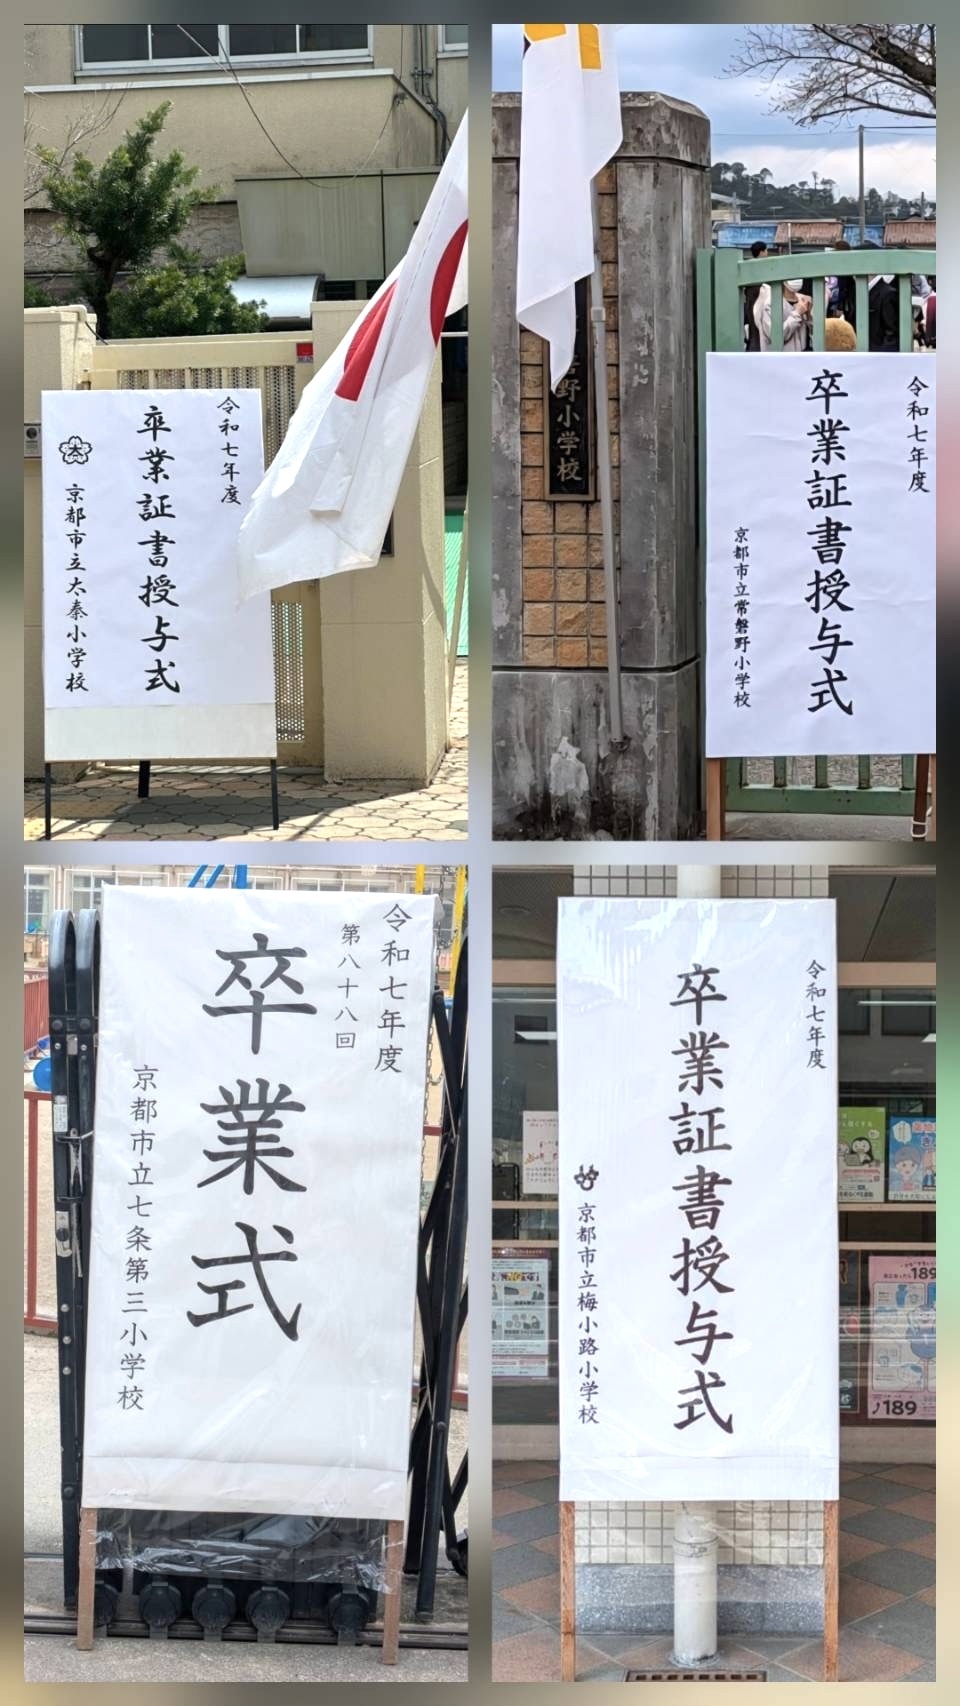 令和七年度
卒業証書授与式
京都市立太秦小学校
野小学校
令和七年度
卒業証書授与式
京都市立常磐野小学校
令和七年度
第八十八回
卒業式
京都市立七条第三小学校
令和七年度
卒業証書授与式
京都市立梅小路小学校
189
189